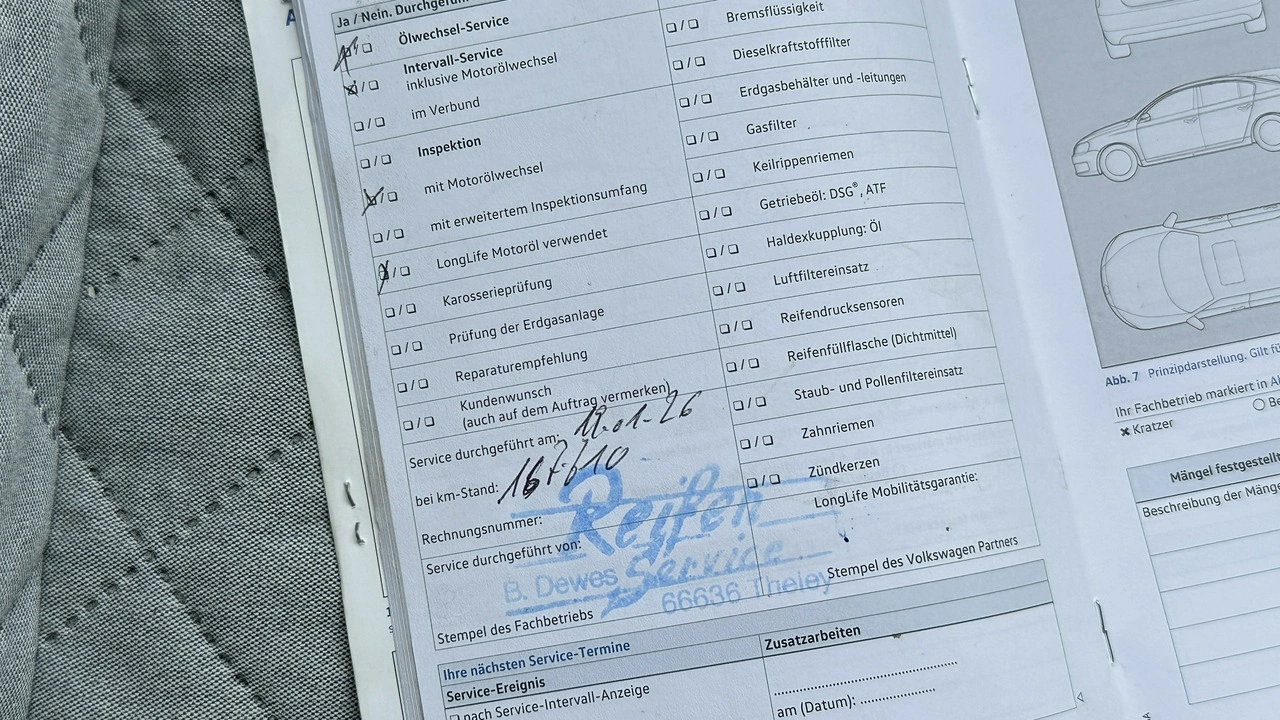 Ja / Nein. Durchgeführ
Ölwechsel-Service
Intervall-Service
inklusive Motorölwechsel
im Verbund
Inspektion
mit Motorölwechsel
mit erweitertem Inspektionsumfang
LongLife Motoröl verwendet
Karosserieprüfung
Prüfung der Erdgasanlage
Reparaturempfehlung
Kundenwunsch
(auch auf dem Auftrag vermerken)
Service durchgeführt am:
bei km-Stand:
Rechnungsnummer:
Service durchgeführt von:
Reifen
Service
B. Dewes
66636 Theley
Stempel des Fachbetriebs
Bremsflüssigkeit
Dieselkraftstofffilter
Erdgasbehälter und -leitungen
Gasfilter
Keilrippenriemen
Getriebeöl: DSG®, ATF
Haldexkupplung: Öl
Luftfiltereinsatz
Reifendrucksensoren
Reifenfüllflasche (Dichtmittel)
Staub- und Pollenfiltereinsatz
Zahnriemen
Zündkerzen
LongLife Mobilitätsgarantie:
Stempel des Volkswagen Partners
Ihre nächsten Service-Termine
Service-Ereignis
nach Service-Intervall-Anzeige
Zusatzarbeiten
am (Datum):
Abb. 7 Prinzipdarstellung. Gilt fü
Ihr Fachbetrieb markiert in Ab
Kratzer
Be
Mängel festgestellt
Beschreibung der Mänge